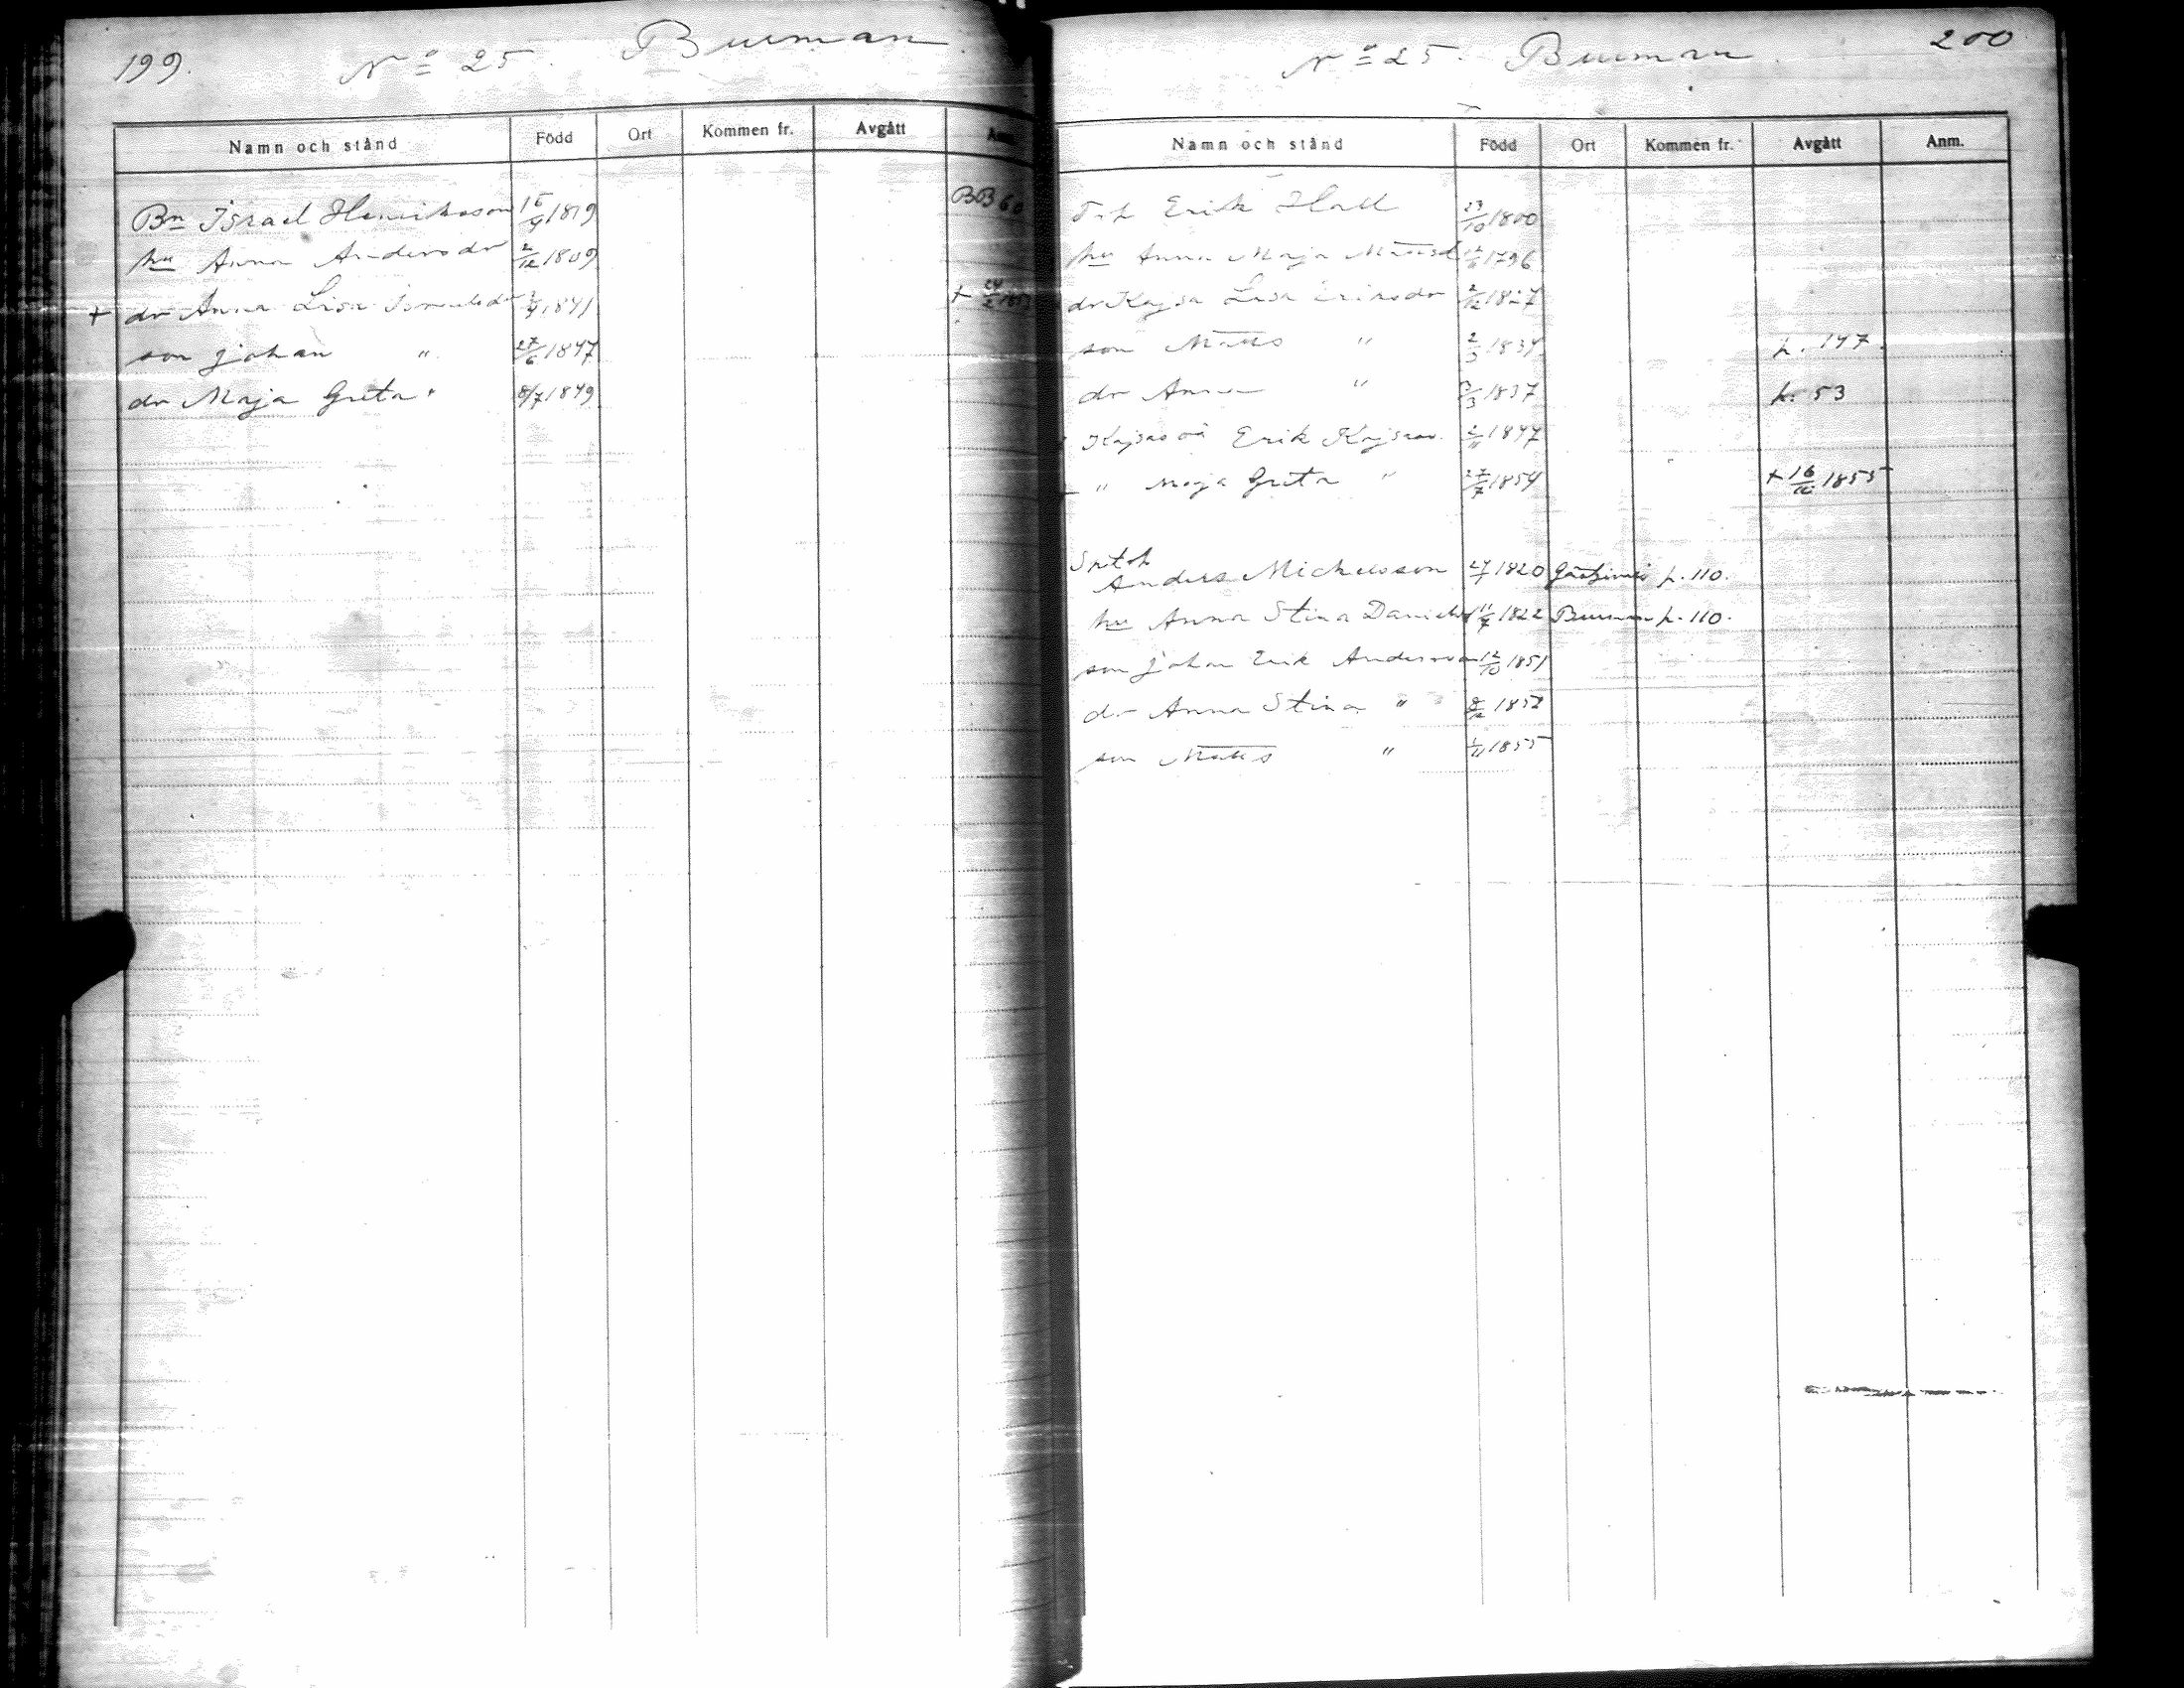 199. No 25. Burman.
Namn och stånd Född Ort Kommen fr. Avgått Anm.
Bn Israel Henriksson 15/4 1819 BB 60
hu Anna Andersdr 2/12 1809
+ dr Anna Lisa Israelsdr 2/4 1841 + 24/2 1853
son Johan " 27/6 1847
dr Maja Greta " 8/7 1849
No 25. Burman. 200
Namn och stånd Född Ort Kommen fr. Avgått Anm.
Erik Hall 23/10 1800
hu Anna Maja Mattsd 1796
dr Kajsa Lisa Eriksdr 2/12 1827
son Matts " 2/3 1834 p. 147.
dr Anna " 3/3 1837 p. 53
Kajsas oä Erik Kajsas. 2/11 1847
" Maja Greta " 27/7 1854 + 16/12 1855
Anders Mickelsson 27/1 1820 p. 110.
hu Anna Stina Danielsd 11/7 1822 Burman p. 110.
son Johan Erik Andersson 12/10 1851
dr Anna Stina " 8/12 1852
son Matts " 1/11 1855